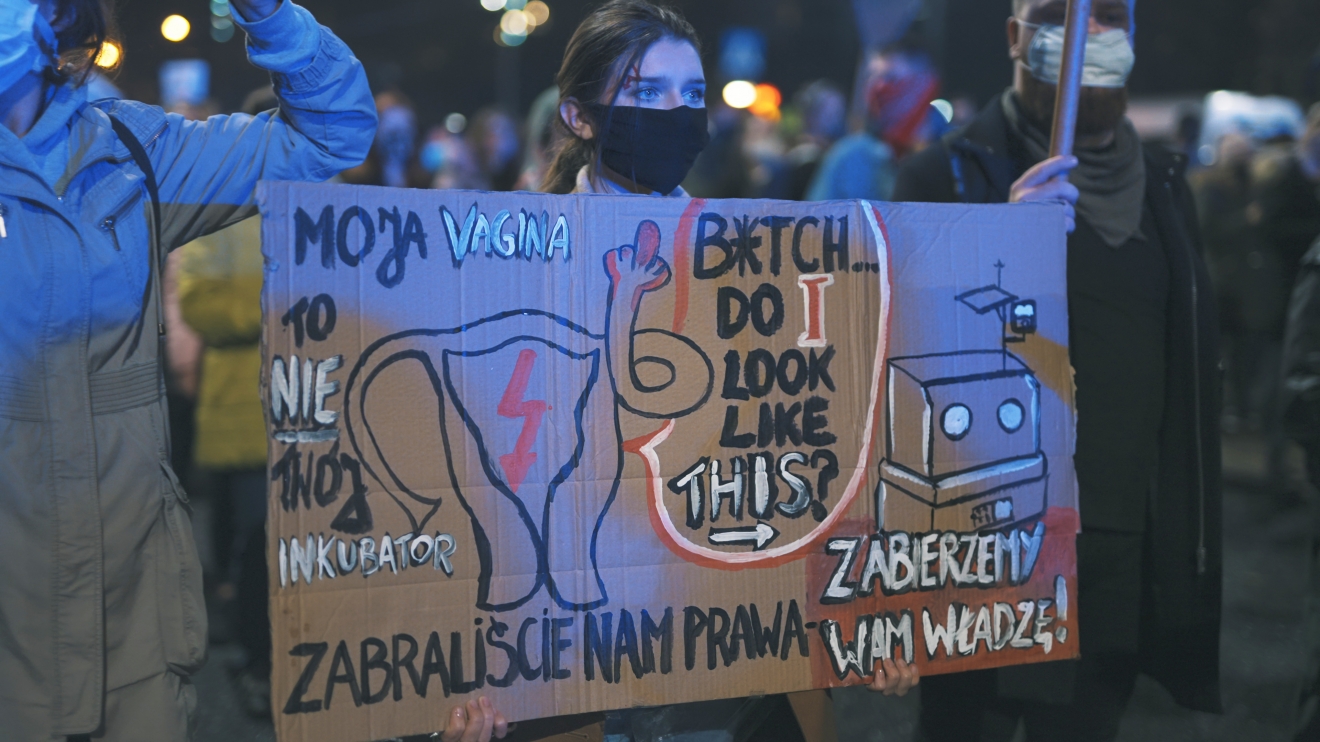 MOJA VAGINA
TO
NIE
TWÓJ
INKUBATOR
B*TCH...
DO I
LOOK
LIKE
THIS?
ZABRALIŚCIE NAM PRAWA-
ZABIERZEMY
WAM WŁADZĘ!